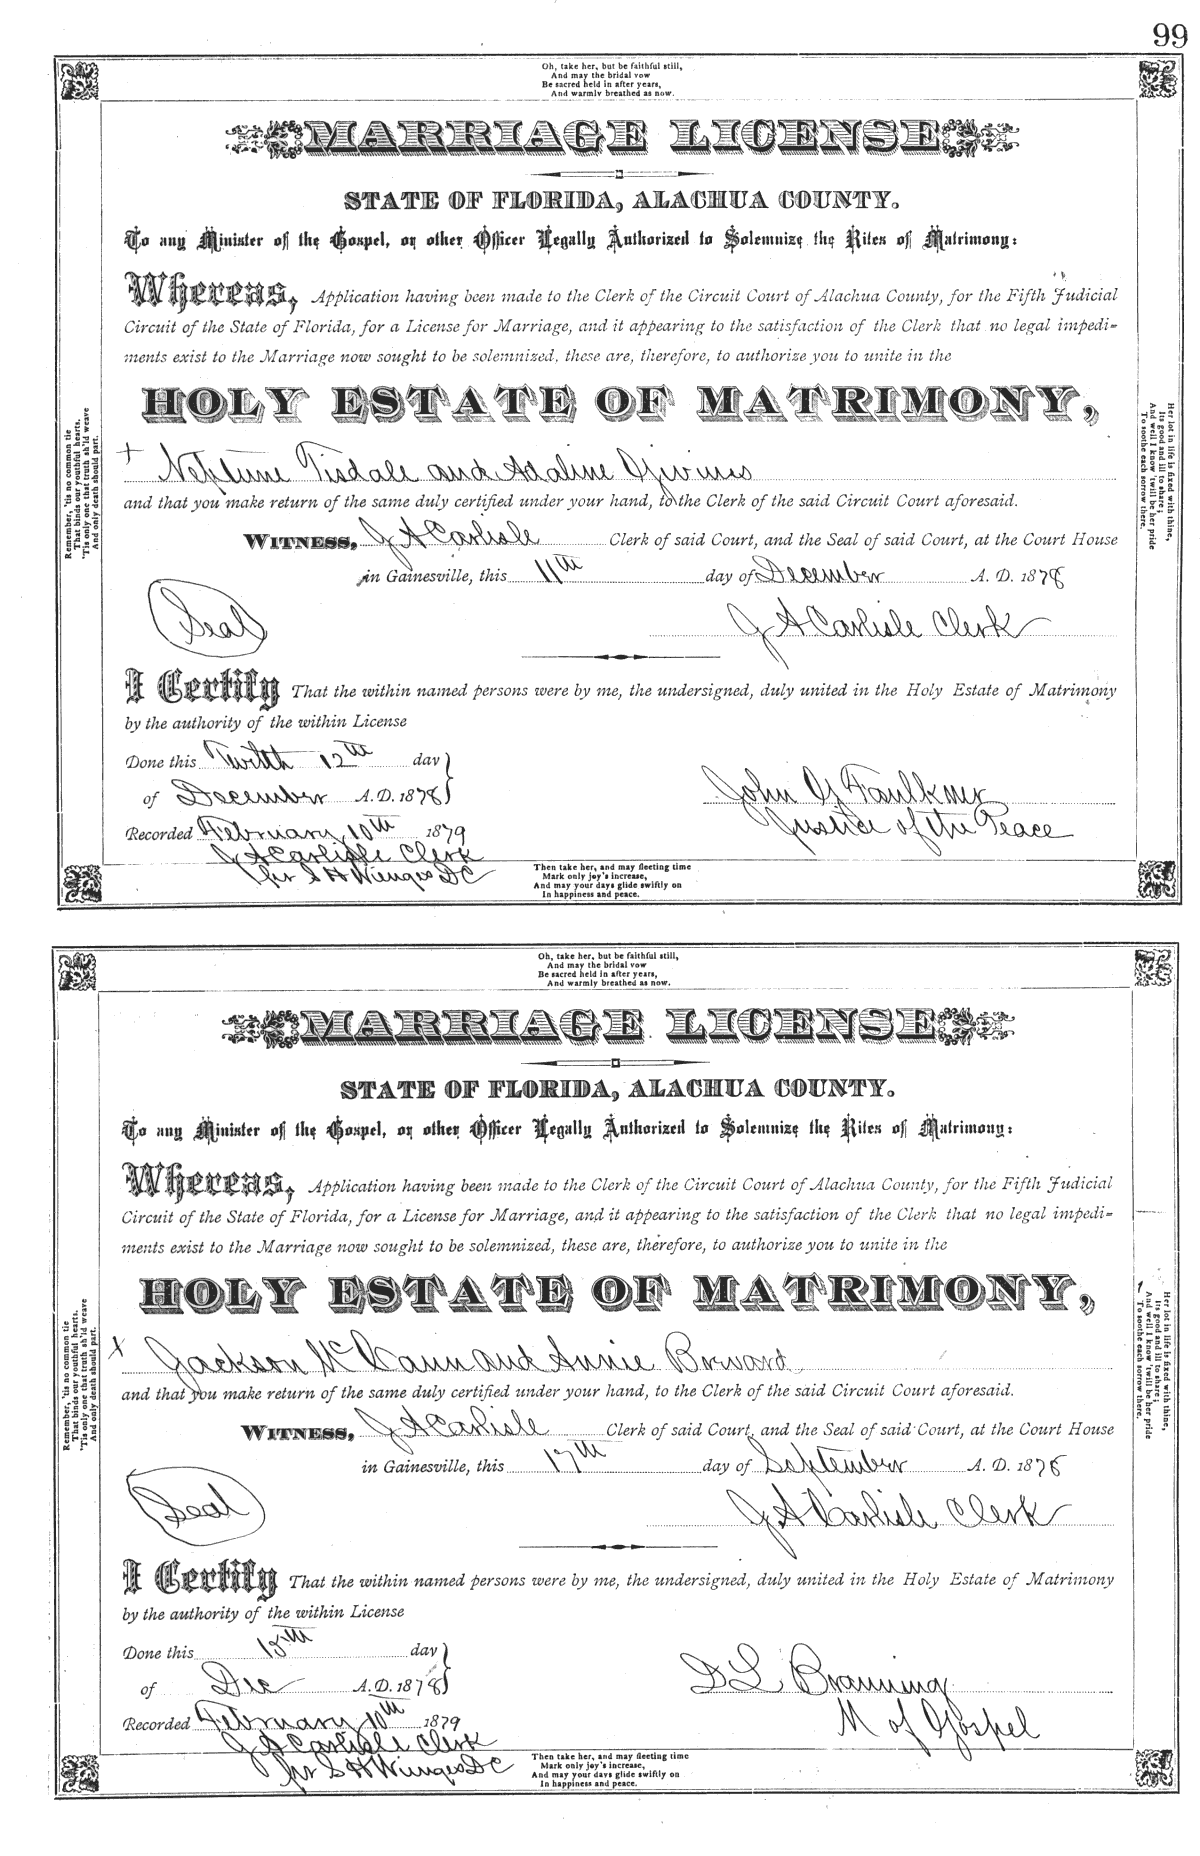 99
Oh, take her, but be faithful still,
And may the bridal vow
Be sacred held in after years,
And warmly breathed as now.
MARRIAGE LICENSE
STATE OF FLORIDA, ALACHUA COUNTY.
To any Minister of the Gospel, or other Officer Legally Authorized to Solemnize the Rites of Matrimony:
Whereas, Application having been made to the Clerk of the Circuit Court of Alachua County, for the Fifth Judicial
Circuit of the State of Florida, for a License for Marriage, and it appearing to the satisfaction of the Clerk that no legal impedi-
ments exist to the Marriage now sought to be solemnized, these are, therefore, to authorize you to unite in the
HOLY ESTATE OF MATRIMONY,
x Neptune Tisdale and Adaline Givines
and that you make return of the same duly certified under your hand, to the Clerk of the said Circuit Court aforesaid.
WITNESS, J A Carlisle Clerk of said Court, and the Seal of said Court, at the Court House
in Gainesville, this 11th day of December A. D. 1878
Seal
J A Carlisle Clerk
I Certify That the within named persons were by me, the undersigned, duly united in the Holy Estate of Matrimony
by the authority of the within License
Done this Twilth 12th day
of December A.D. 1878
John G Faulkner
Justice of the Peace
Recorded February 10th 1879
J A Carlisle Clerk
per S H Wienges DC
Then take her, and may fleeting time
Mark only joy's increase,
And may your days glide swiftly on
In happiness and peace.
Remember, 'tis no common tie
That binds our youthful hearts.
'Tis only one that truth sh'ld weave
And only death should part.
Her lot in life is fixed with thine,
Its good and ill to share;
And well I know 'twill be her pride
To soothe each sorrow there.
Oh, take her, but be faithful still,
And may the bridal vow
Be sacred held in after years,
And warmly breathed as now.
MARRIAGE LICENSE
STATE OF FLORIDA, ALACHUA COUNTY.
To any Minister of the Gospel, or other Officer Legally Authorized to Solemnize the Rites of Matrimony:
Whereas, Application having been made to the Clerk of the Circuit Court of Alachua County, for the Fifth Judicial
Circuit of the State of Florida, for a License for Marriage, and it appearing to the satisfaction of the Clerk that no legal impedi-
ments exist to the Marriage now sought to be solemnized, these are, therefore, to authorize you to unite in the
HOLY ESTATE OF MATRIMONY,
x Jackson McCann and Annie Brward
and that you make return of the same duly certified under your hand, to the Clerk of the said Circuit Court aforesaid.
WITNESS, J A Carlisle Clerk of said Court, and the Seal of said Court, at the Court House
in Gainesville, this 17th day of September A. D. 1878
Seal
J A Carlisle Clerk
I Certify That the within named persons were by me, the undersigned, duly united in the Holy Estate of Matrimony
by the authority of the within License
Done this 15th day
of Dec A.D. 1878
D L Branning
M of Gospel
Recorded February 10th 1879
J A Carlisle Clerk
per S H Wienges DC
Then take her, and may fleeting time
Mark only joy's increase,
And may your days glide swiftly on
In happiness and peace.
Remember, 'tis no common tie
That binds our youthful hearts.
'Tis only one that truth sh'ld weave
And only death should part.
Her lot in life is fixed with thine,
Its good and ill to share;
And well I know 'twill be her pride
To soothe each sorrow there.